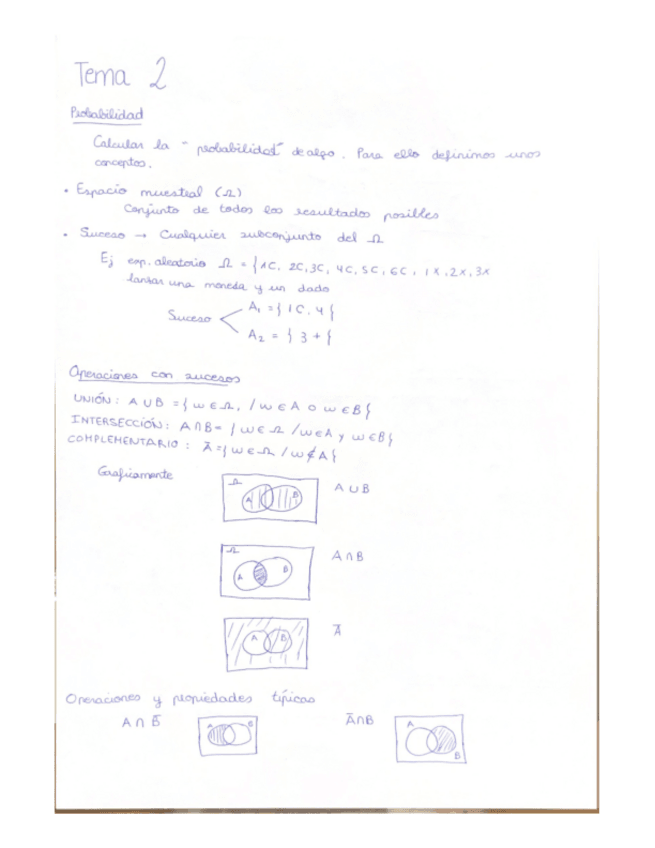 Tema 2
Probabilidad
Calcular la "probabilidad" de algo. Para ello definimos unos
conceptos.
• Espacio muestral (Ω)
Conjunto de todos los resultados posibles
• Suceso → Cualquier subconjunto del Ω
Ej exp. aleatorio Ω = {1C, 2C, 3C, 4C, 5C, 6C, 1X, 2X, 3X
lanzar una moneda y un dado
Suceso
A₁ = {1C, 4}
A₂ = {3+}
Operaciones con sucesos
UNIÓN: A ∪ B = {ω ∈ Ω, / ω ∈ A o ω ∈ B}
INTERSECCIÓN: A ∩ B = {ω ∈ Ω / ω ∈ A y ω ∈ B}
COMPLEMENTARIO: Ā = {ω ∈ Ω / ω ∉ A}
Graficamente
Ω A B A ∪ B
Ω A B A ∩ B
A B Ā
Operaciones y propiedades típicas
A ∩ B̄ A B Ā ∩ B A B